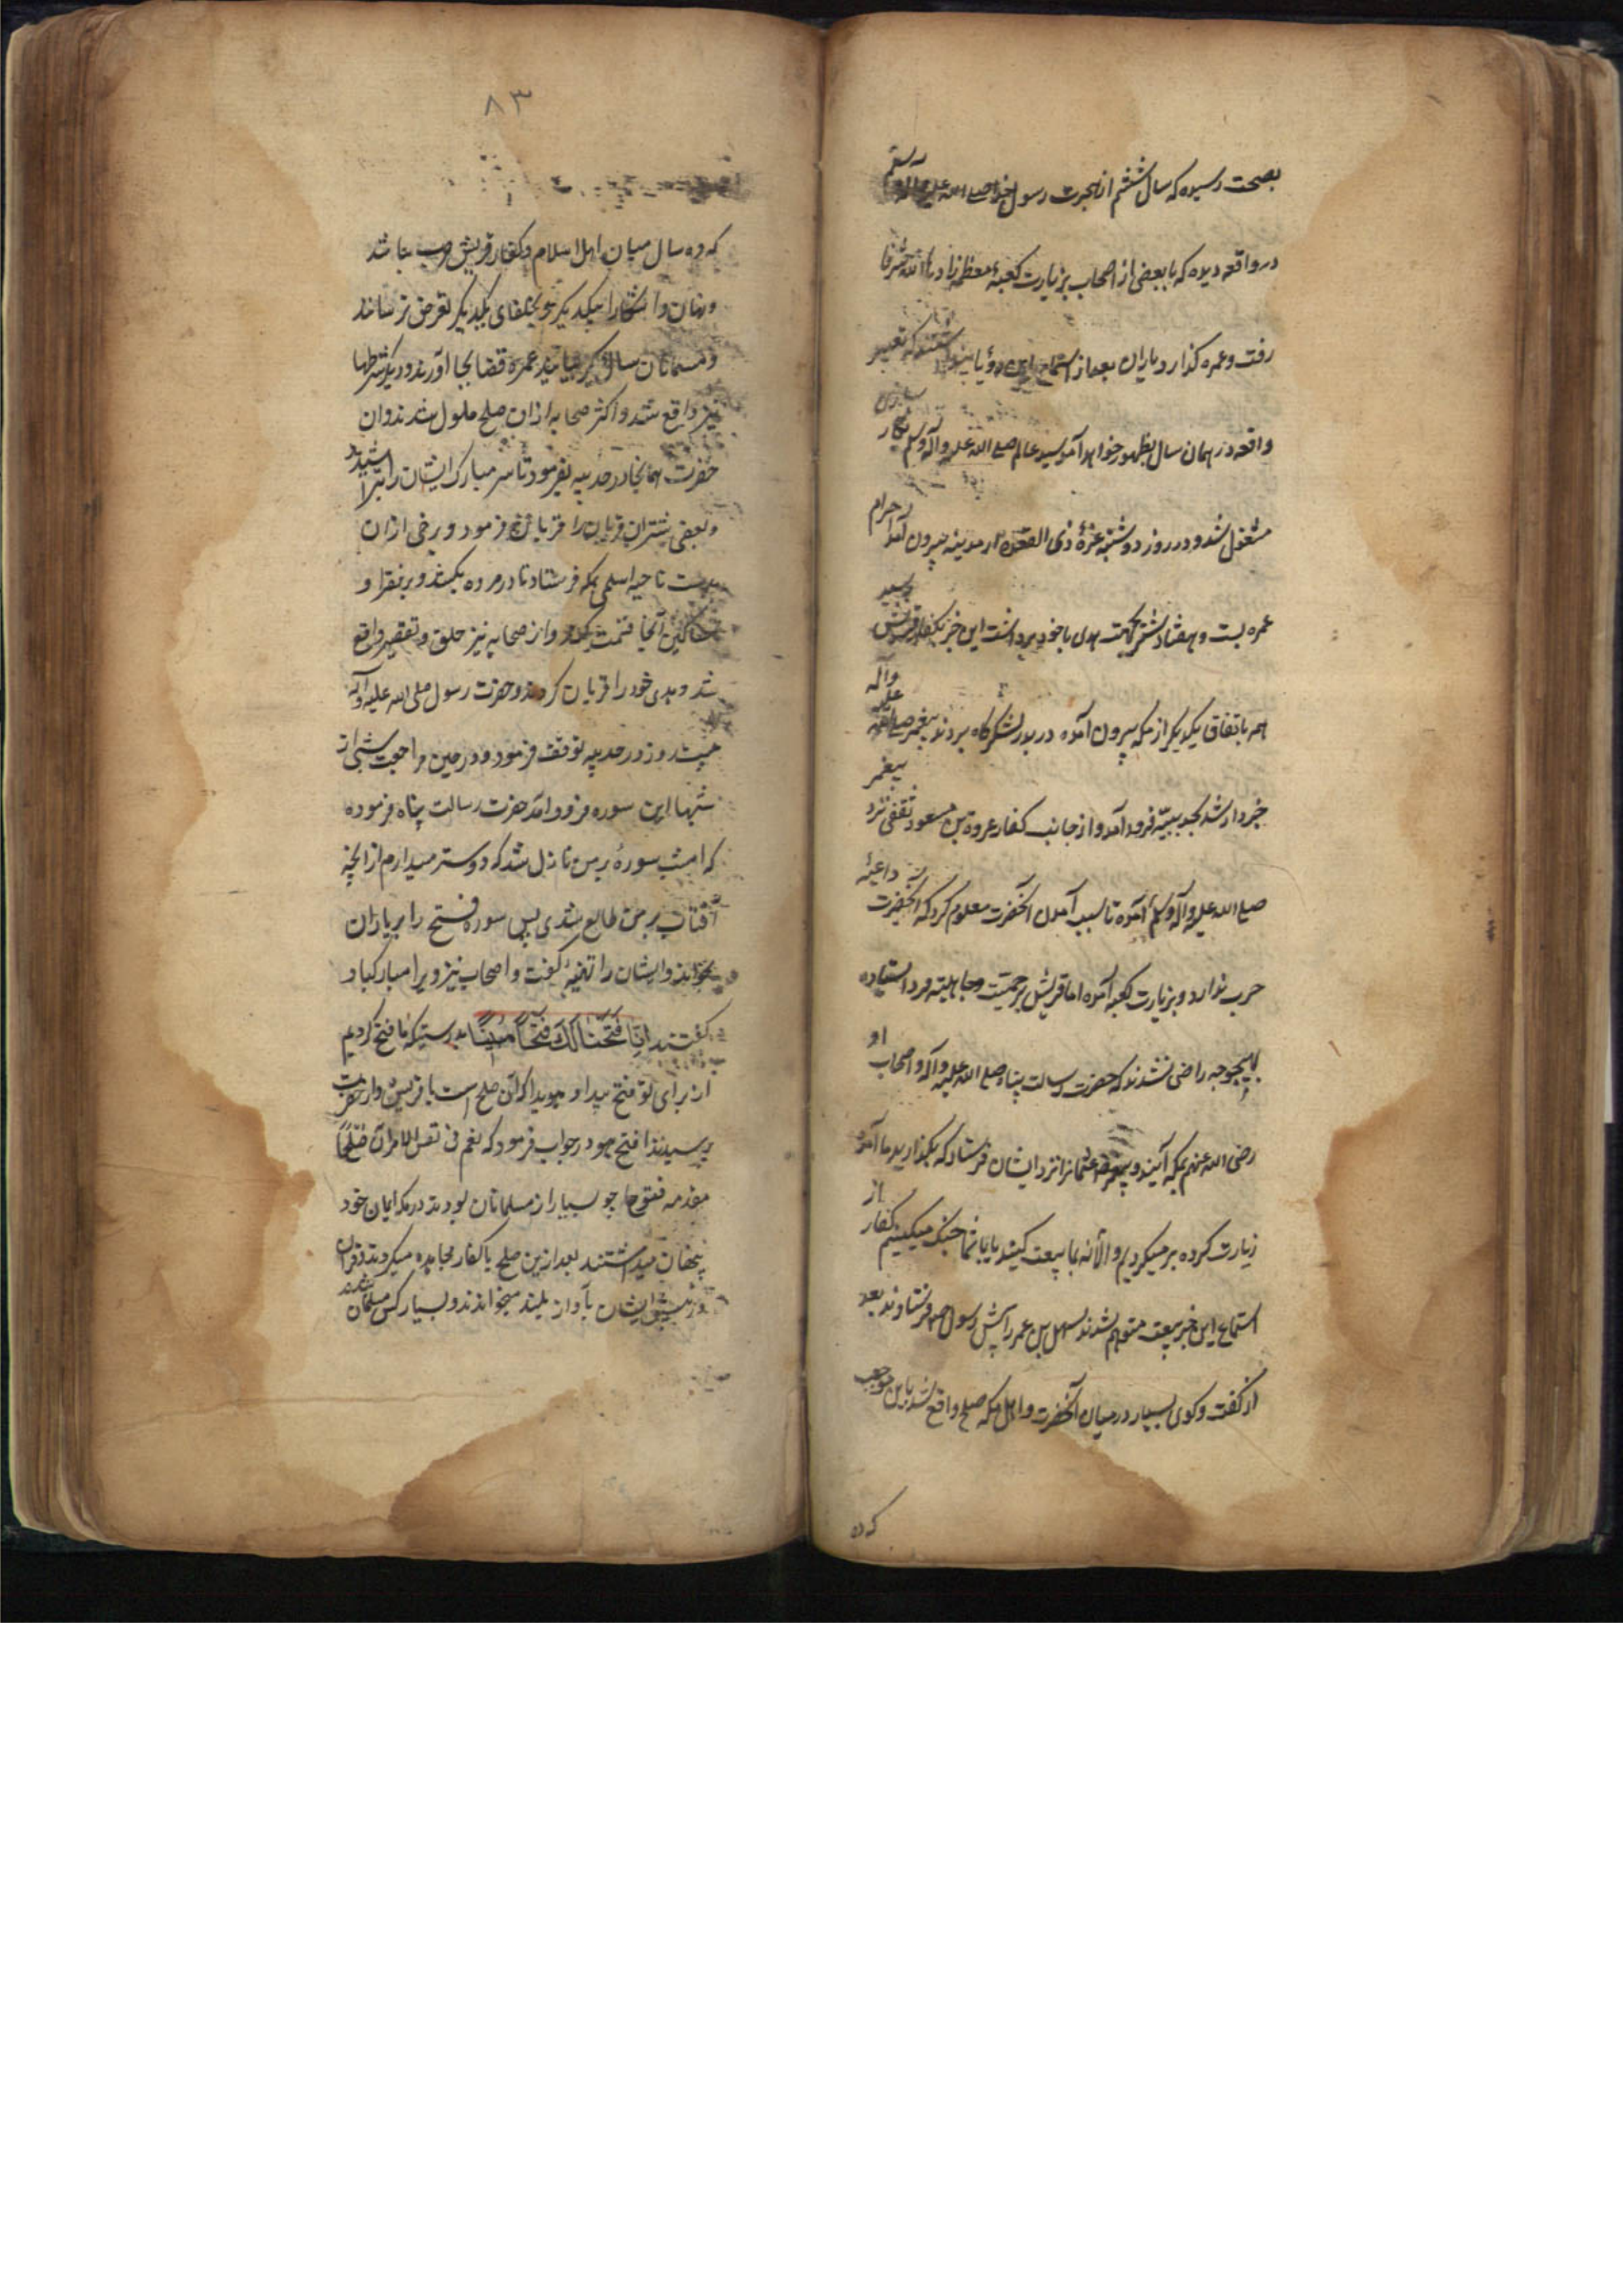 بصحت رسیده که سال ششم از هجرت رسول خدا صلی الله علیه وآله وسلم
در واقعه دیده که با بعضی از اصحاب بزیارت کعبهٔ معظمه زادها الله شرفا
رفت و عمره گذارد یاران بعد از استماع این رؤیا پنداشتند که تعبیر
واقعه در همان سال بظهور خواهد آمد سید عالم صلی الله علیه وآله وسلم بکار سازی
مشغول شد و در روز دوشنبه غرهٔ ذی القعده از مدینه بیرون آمد احرام
عمره بست و هفتاد شتر بجهت هدی با خود برداشت این خبر بکفار قریش رسید
همه باتفاق یکدیگر از مکه بیرون آمده در بدر لشکرگاه بردند پیغمبر صلی الله علیه وآله
خبردار شد بحدیبیه فرود آمد و از جانب کفار عروة بن مسعود ثقفی نزد پیغمبر
صلی الله علیه وآله وسلم آمده تا سبب آمدن آنحضرت معلوم کرد که آنحضرت داعیهٔ
حرب ندارد و بزیارت کعبه آمده اما قریش بر حمیت وجاهلیته فرد استیاده
بهیچوجه راضی نشدند که حضرت رسالت پناه صلی الله علیه وآله و اصحاب او
رضی الله عنهم بمکه آیند و عثمانرا نزد ایشان فرستاد که بگذارید ما آمده
زیارت کرده برمیگردیم والا نه بما بیعت کنید یا با شما جنگ میکنیم کفار از
استماع این خبر بیعت متوهم شدند سهل بن عمر را پیش رسول فرستادند بعد
از گفت وکوی بسیار در میان آنحضرت و اهل مکه صلح واقع شد باین موجب
که ده
۸۳
که ده سال میان اهل اسلام و کفار قریش حرب نباشد
و نهان و آشکارا بیکدیگر و بحلفای یکدیگر تعرض نرسانند
و مسلمانان سال دیگر بیایند عمره قضا بجا آورند و دیگر شرطها
نیز واقع شد و اکثر صحابه ازان صلح ملول شدند و ان
حضرت همانجا در حدیبیه بفرمود تا سر مبارک ایشان را تراشیدند
و بعضی شتران قربان را قربانی فرمود و برخی ازان
بدست ناجیه اسلمی بمکه فرستاد تا در مروه بکشند و بر فقرا و
مساکین آنجا قسمت کند و از صحابه نیز حلق و تقصیر واقع
شد و هدی خود را قربان کردند و حضرت رسول صلی الله علیه وآله
بیست روز در حدیبیه توقف فرمود و در حین مراجعت شبی از
شبها این سوره فرود آمد حضرت رسالت پناه فرموده
که امشب سورهٔ بر من نازل شد که دوستر میدارم از انچه
آفتاب بر من طالع شدی پس سوره فتح را بر یاران
بخواند و ایشان را تهنیه گفت و اصحاب نیز ویرا مبارکباد
گفتند اِنَّا فَتَحْنَا لَكَ فَتْحًا مُبِينًا بدرستیکه ما فتح کردیم
از برای تو فتح پیدا و هویدا که ان صلح است با قریش و از حضرت
پرسیدند افتح هو در جواب فرمود که نعم فی نفس الامر آن صلح
مقدمه فتوحها چو بسیار از مسلمانان بودند در مکه ایمان خود
پنهان میداشتند بعد ازین صلح با کفار مجاهده میکردند و قران
در پیش ایشان بآواز بلند میخواندند و بسیار کس مسلمان شدند